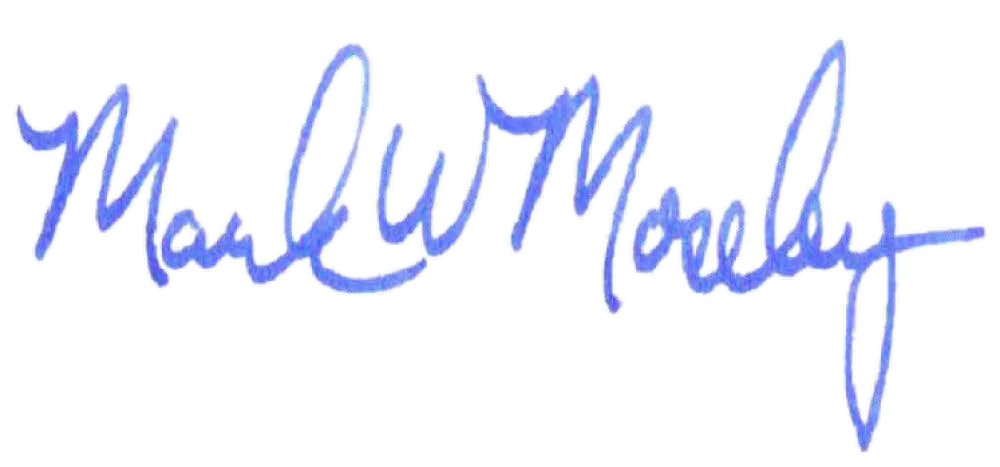 Mark W Moseley